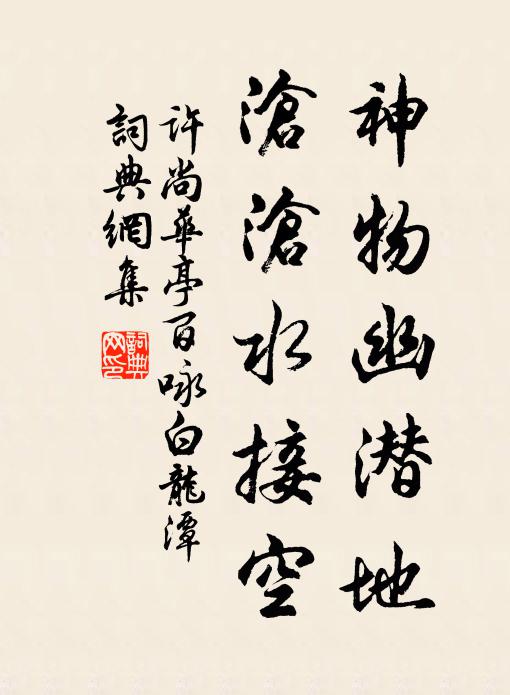 神物幽潜地
滄滄水接空
許尚華亭百咏白龍潭
詞典網集
詞典
网印